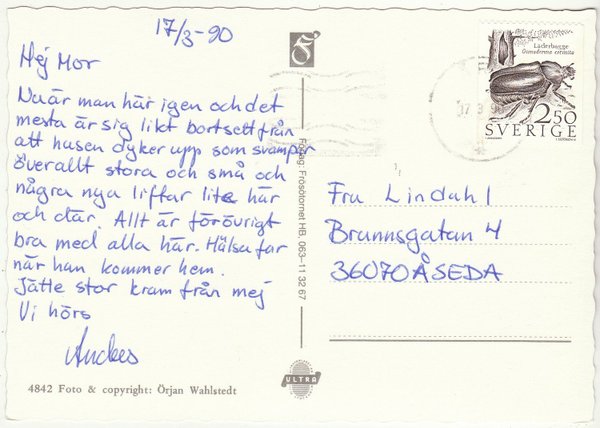 17/3-90
Hej Mor
Nu är man här igen och det
mesta är sig likt bortsett från
att husen dyker upp som svampar
överallt stora och små och
några nya liftar lite här
och där. Allt är förövrigt
bra med alla här. Hälsa far
när han kommer hem.
Jätte stor kram från mej
Vi hörs
Anders
4842 Foto & copyright: Örjan Wahlstedt
Förlag: Frösöfornet HB. 063-11 32 67
ULTRA
Läderbagge
Osmoderma eremita
2.50
SVERIGE
Fru Lindahl
Brunnsgatan 4
36070 ÅSEDA